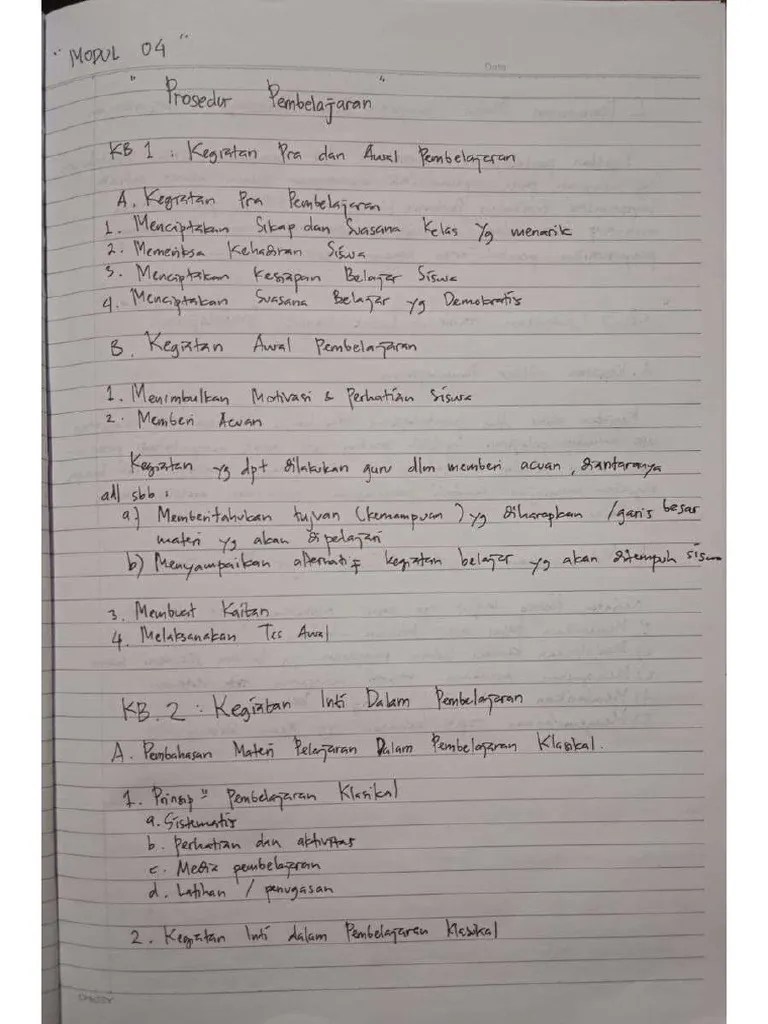 " MODUL 04 "
Date
" Prosedur Pembelajaran "
KB 1 : Kegiatan Pra dan Awal Pembelajaran
A. Kegiatan Pra Pembelajaran
1. Menciptakan Sikap dan Suasana Kelas Yg menarik
2. Memeriksa Kehadiran Siswa
3. Menciptakan Kesiapan Belajar Siswa
4. Menciptakan Suasana Belajar yg Demokratis
B. Kegiatan Awal Pembelajaran
1. Menimbulkan Motivasi & Perhatian Siswa
2. Memberi Acuan
Kegiatan yg dpt dilakukan guru dlm memberi acuan, diantaranya
adl sbb :
a) Memberitahukan tujuan (kemampuan) yg diharapkan / garis besar
materi yg akan dipelajari
b) Menyampaikan alternatif kegiatan belajar yg akan ditempuh siswa
3. Membuat Kaitan
4. Melaksanakan Tes Awal
KB. 2 : Kegiatan Inti Dalam Pembelajaran
A. Pembahasan Materi Pelajaran Dalam Pembelajaran Klasikal.
1. Prinsip" Pembelajaran Klasikal
a. Sistematis
b. perhatian dan aktivitas
c. Media pembelajaran
d. Latihan / penugasan
2. Kegiatan Inti dalam Pembelajaran Klasikal